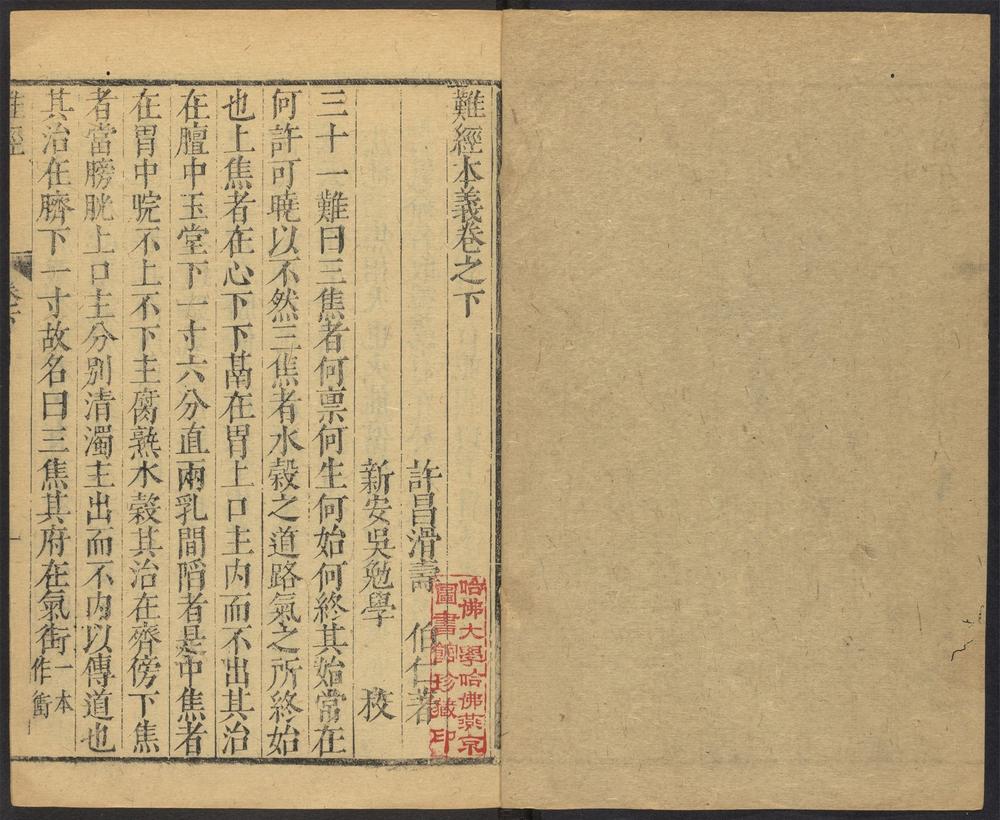 難經本義卷之下
許昌滑壽 伯仁著
新安吳勉學 校
三十一難曰三焦者何禀何生何始何終其始常在
何許可曉以不然三焦者水穀之道路氣之所終始
也上焦者在心下下鬲在胃上口主内而不出其治
在膻中玉堂下一寸六分直兩乳間陷者是中焦者
在胃中脘不上不下主腐熟水穀其治在齊傍下焦
者當膀胱上口主分別清濁主出而不内以傳道也
其治在臍下一寸故名曰三焦其府在氣街一本作衝
難經
卷下
一
哈佛大學哈佛燕京
圖書館珍藏印